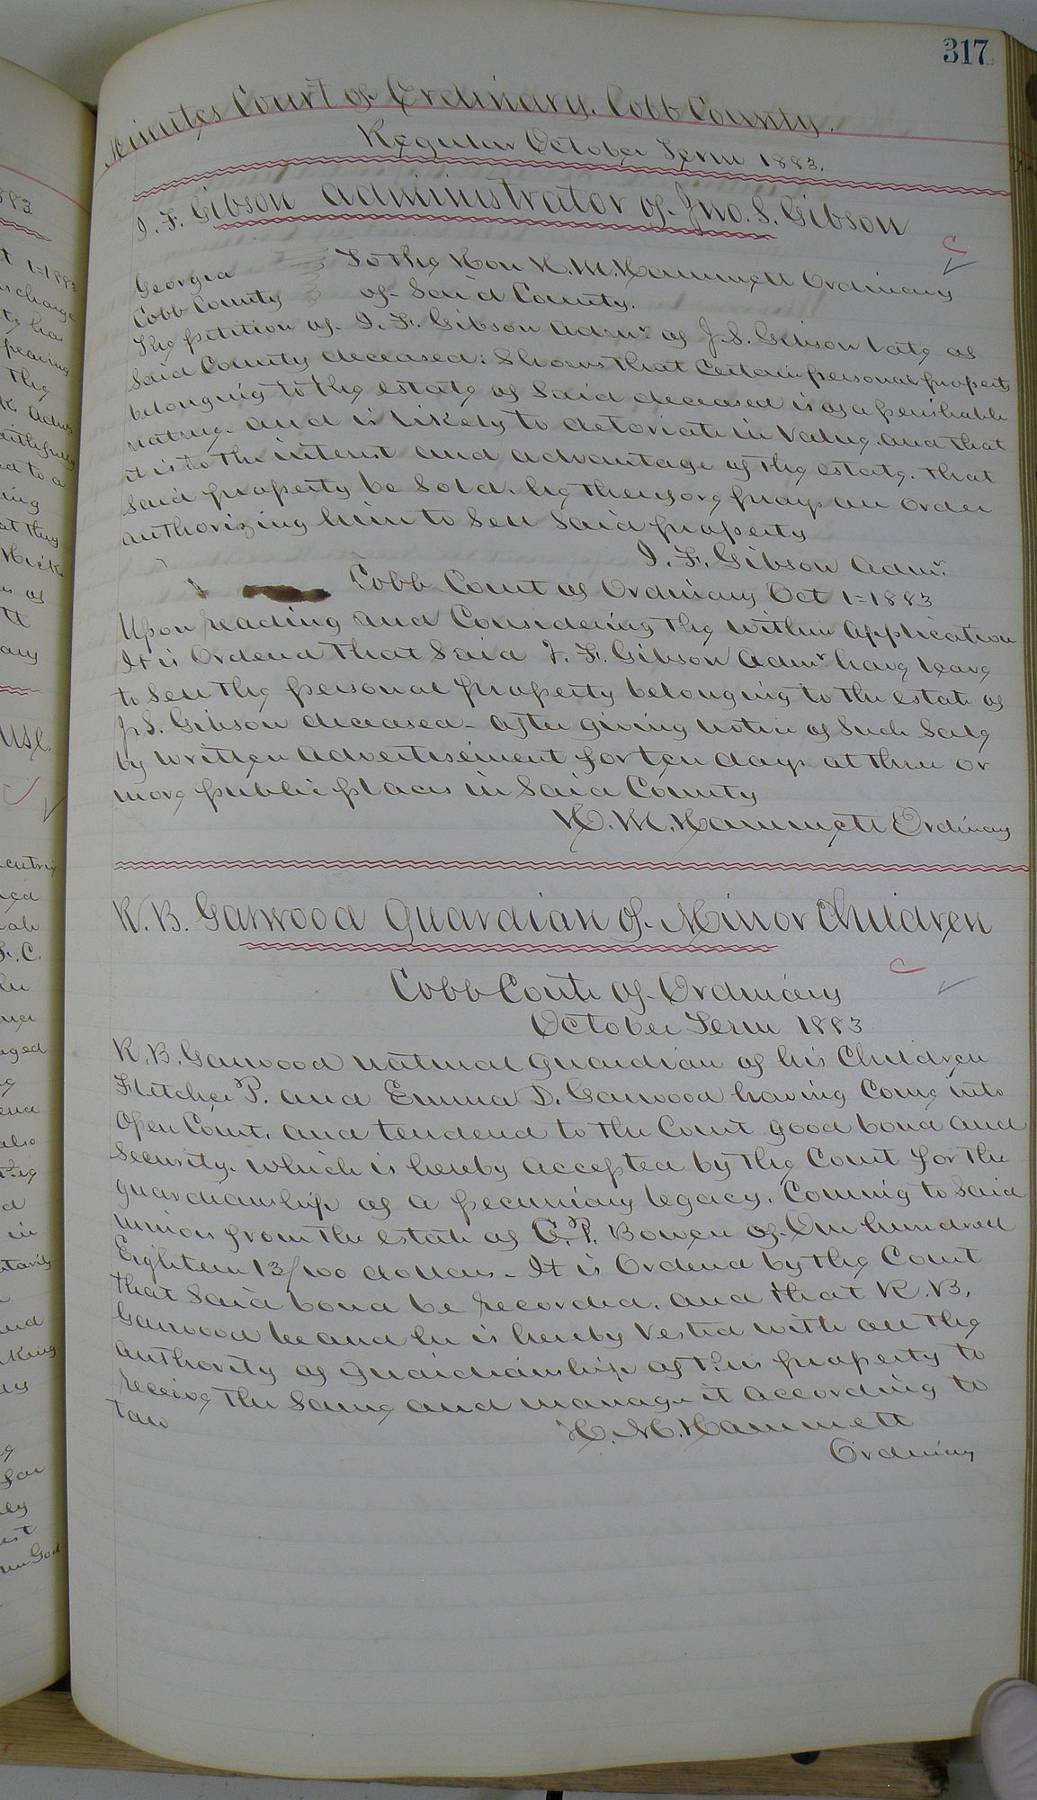 317
Minutes Court of Ordinary. Cobb County.
Regular October Term 1883.
I. F. Gibson Administrator of Jno. S. Gibson
Georgia To the Hon H. M. Hammett Ordinary
Cobb County of Said County.
The petition of I. F. Gibson Admr of J. S. Gibson late of
Said County deceased: Shows that Certain personal property
belonging to the estate of Said deceased is of a perishable
nature. and is likely to detoriate in Value. and that
it is to the interest and advantage of the estate. that
Said property be Sold. he therefore prays an order
authorizing him to Sell Said property
I. F. Gibson Admr.
Cobb Court of Ordinary Oct 1=1883
Upon reading and Considering the within application
It is Ordered that Said I. F. Gibson Admr have leave
to Sell the personal property belonging to the estate of
J. S. Gibson deceased - after giving notice of Such Sale
by written advertisement for ten days at three or
more public places in Said County
H. M. Hammett Ordinary
R. B. Garwood Guardian of Minor Children
Cobb Court of Ordinary
October Term 1883
R. B. Garwood natural guardian of his Children
Fletcher P. and Emma D. Garwood having Come into
Open Court. and tendered to the Court good bond and
Security. which is hereby accepted by the Court for the
guardianship of a pecuniary legacy. Coming to Said
minors from the estate of C. P. Bowen of One hundred
Eighteen 13/100 dollars - It is Ordered by the Court
that Said bond be recorded. and that R. B.
Garwood be and he is hereby Vested with all the
authority of guardianship of this property to
receive the Same and manage it according to
law H. M. Hammett
Ordinary